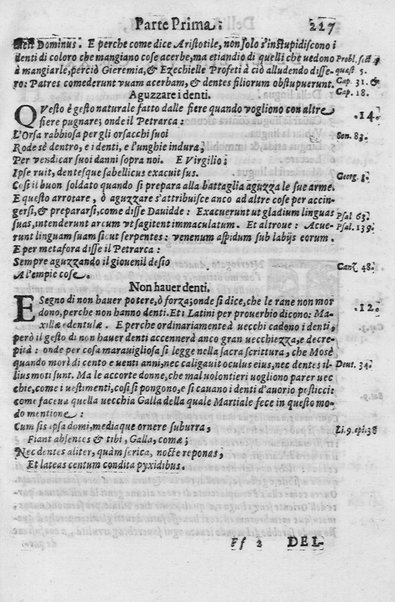 Parte Prima. 227
Dominus. E perche come dice Aristotile, non solo s'instupidiscono i
denti di coloro che mangiano cose acerbe, ma etiandio di quelli che uedono Probl. sect.
à mangiarle, perciò Gieremia, & Ezechielle Profeti à ciò alludendo disse- 7. quæst 5.
ro: Patres comederunt vuam acerbam, & dentes filiorum obstupuerunt. Cap. 31. &
Aguzzare i denti. Cap. 18.
QVesto è gesto naturale fatto dalle fiere quando vogliono con altre .14.
fiere pugnare; onde il Petrarca:
L'Orsa rabbiosa per gli orsacchi suoi Son. 83.
Rode sè dentro, e i denti, e l'unghie indura,
Per vendicar suoi danni sopra noi. E Virgilio;
Ipse ruit, dentesque sabellicus exacuit sus. Georg. 3.
Così il buon soldato quando si prepara alla battaglia aguzza le sue arme.
E questo arrotare, ò aguzzare s'attribuisce anco ad altre cose per accin-
gersi, & prepararsi, come disse Dauidde: Exacuerunt ut gladium linguas Psal. 63.
suas, intenderunt arcum ut sagittent immaculatum. Et altroue: Acue- Psal. 139.
runt linguam suam sicut serpentes: venenum aspidum sub labijs eorum.
E per metafora disse il Petrarca:
Sempre aguzzando il giouenil desio Canz. 48.
A l'empie cose.
Non hauer denti.
E Segno di non hauer potere, ò forza; onde si dice, che le rane non mor .12.
dono, perche non hanno denti. Et i Latini per prouerbio dicono: Ma-
xilla edentulæ. E perche ordinariamente à uecchi cadono i denti,
però il gesto di non hauer denti accennerà anco gran uecchiezza, e decre-
pità: onde per cosa marauigliosa si legge nella sacra scrittura, che Mosè
quando morì di cento e uenti anni, nec caligauit oculus eius, nec dentes il- Deut. 34.
lius moti sunt. Ma le accorte donne, che mal volontieri vogliono parer uec
chie, come i uestimenti, così si pongono, e si cauano i denti d'auorio posticci:
come faceua quella vecchia Galla della quale Martiale fece in questo mo-
do mentione:
Cum sis ipsa domi, mediaque ornere suburra, Li. 9. epi. 38
Fiant absentes & tibi, Galla, comæ;
Nec dentes aliter, quàm serica, nocte reponas,
Et lateas centum condita pyxidibus.
Ff 2 DEL-